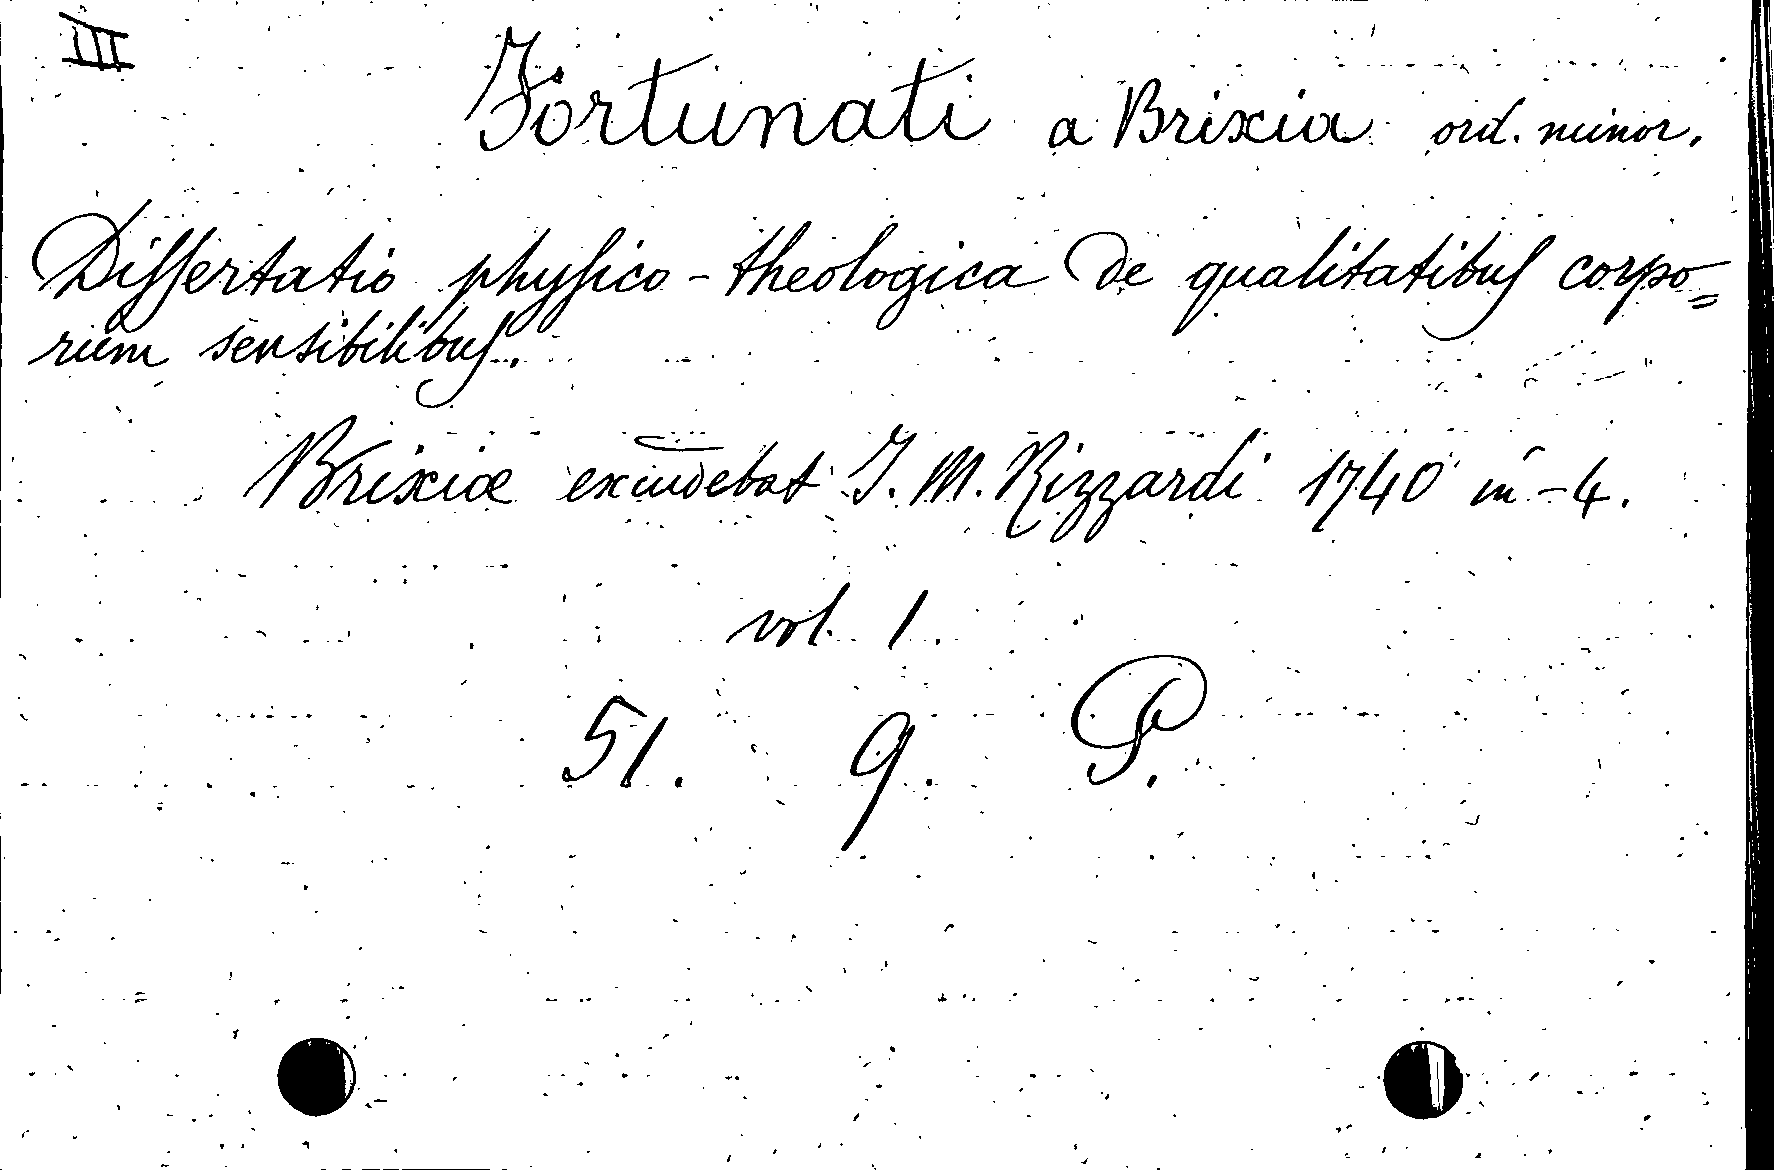 III
Fortunati a Brixia ord. minor.
Dissertatio physico-theologica de qualitatibus corpo=
rum sensibilibus.
Brixiae excudebat J. M. Rizzardi 1740 in-4.
vol. 1
51. 9. P.